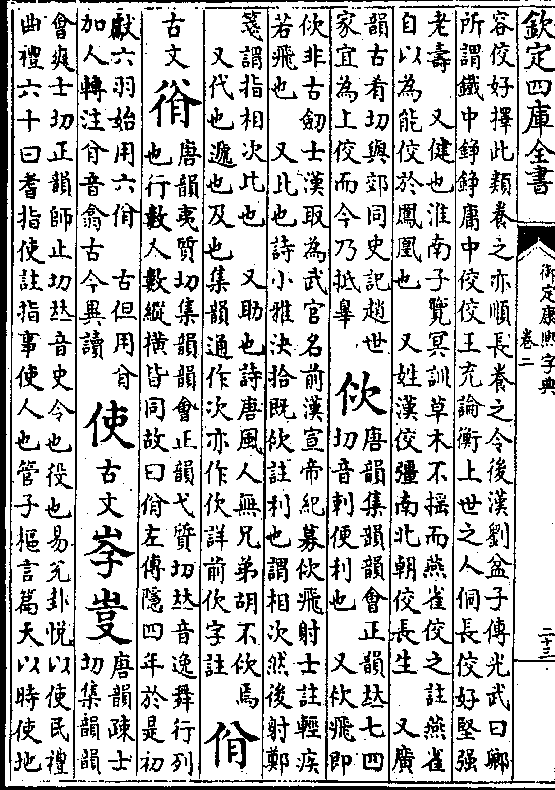 欽定四庫全書
御定康熙字典
卷二
二十三
容佼好擇此類養之亦順長養之令後漢劉盆子傳光武曰卿
所謂鐵中錚錚庸中佼佼王充論衡上世之人侗長佼好堅强
老壽 又健也淮南子覽冥訓草木不搖而燕雀佼之註燕雀
自以為能佼於鳳凰也 又姓漢佼彊南北朝佼長生 又廣
韻古肴切與郊同史記趙世
家宜為上佼而今乃抵辠
佽
唐韻集韻韻會正韻𠀤七四
切音刺便利也 又佽飛即
佽非古劒士漢取為武官名前漢宣帝紀募佽飛射士註輕疾
若飛也 又比也詩小雅決拾既佽註利也謂相次然後射鄭
箋謂指相次比也 又助也詩唐風人無兄弟胡不佽焉
又代也遞也及也集韻通作次亦作㳄詳前㳄字註
佾
古文
㣎
唐韻夷質切集韻韻會正韻弋質切𠀤音逸舞行列
也行數人數縱橫皆同故曰佾左傳隱四年於是初
獻六羽始用六佾 古但用㑞
加人轉注㑞音翕古今異讀
使
古文
𡥐
𡴋
唐韻疎士
切集韻韻
會爽士切正韻師止切𠀤音史令也役也易兌卦悅以使民禮
曲禮六十曰耆指使註指事使人也管子樞言篇天以時使地